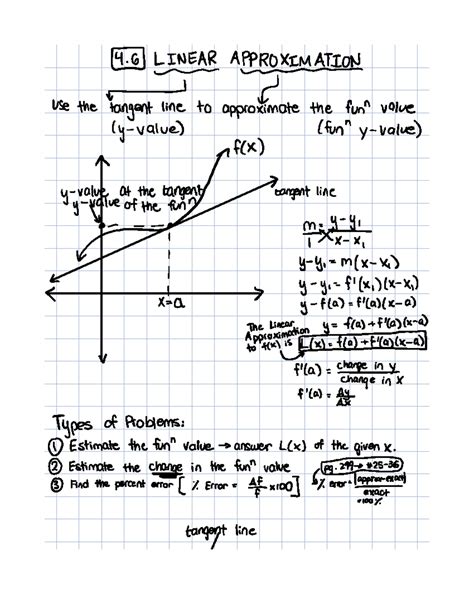 4.6 LINEAR APPROXIMATION
Use the tangent line to approximate the funⁿ value
(y-value) (funⁿ y-value)
f(x)
y-value at the tangent
y-value of the funⁿ
tangent line
x=a
m/1 = y-y₁/x-x₁
y-y₁ = m(x-x₁)
y-y₁ = f'(x₁)(x-x₁)
y-f(a) = f'(a)(x-a)
y = f(a)+f'(a)(x-a)
The Linear
Approximation
to f(x) is L(x) = f(a)+f'(a)(x-a)
f'(a) = change in y/change in x
f'(a) = Δy/Δx
Types of Problems:
① Estimate the funⁿ value → answer L(x) of the given x.
② Estimate the change in the funⁿ value
pg. 299 → #25-36
③ Find the percent error [% Error = Δf/f ×100]
% error = |approx-exact|/exact
×100%
tangent line